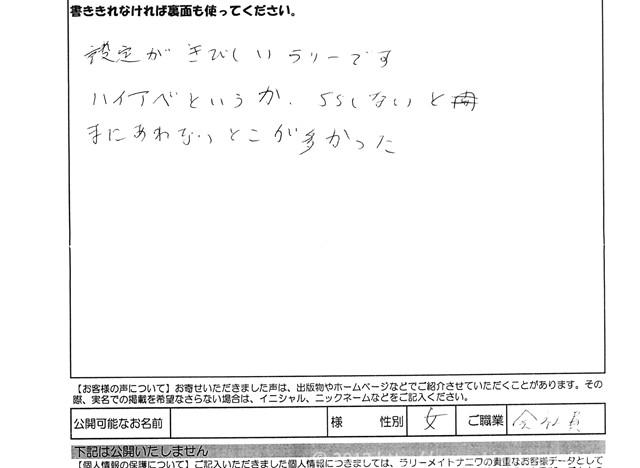 書ききれなければ裏面も使ってください。
設定がきびしいラリーです
ハイアベというか、SSしないと
まにあわないとこが多かった
【お客様の声について】お寄せいただきました声は、出版物やホームページなどでご紹介させていただくことがあります。その
際、実名での掲載を希望なさらない場合は、イニシャル、ニックネームなどをご記入ください。
公開可能なお名前 様 性別 女 ご職業 会社員
下記は公開いたしません
【個人情報の保護について】ご記入いただきました個人情報につきましては、ラリーメイトナニワの貴重なお客様データとして